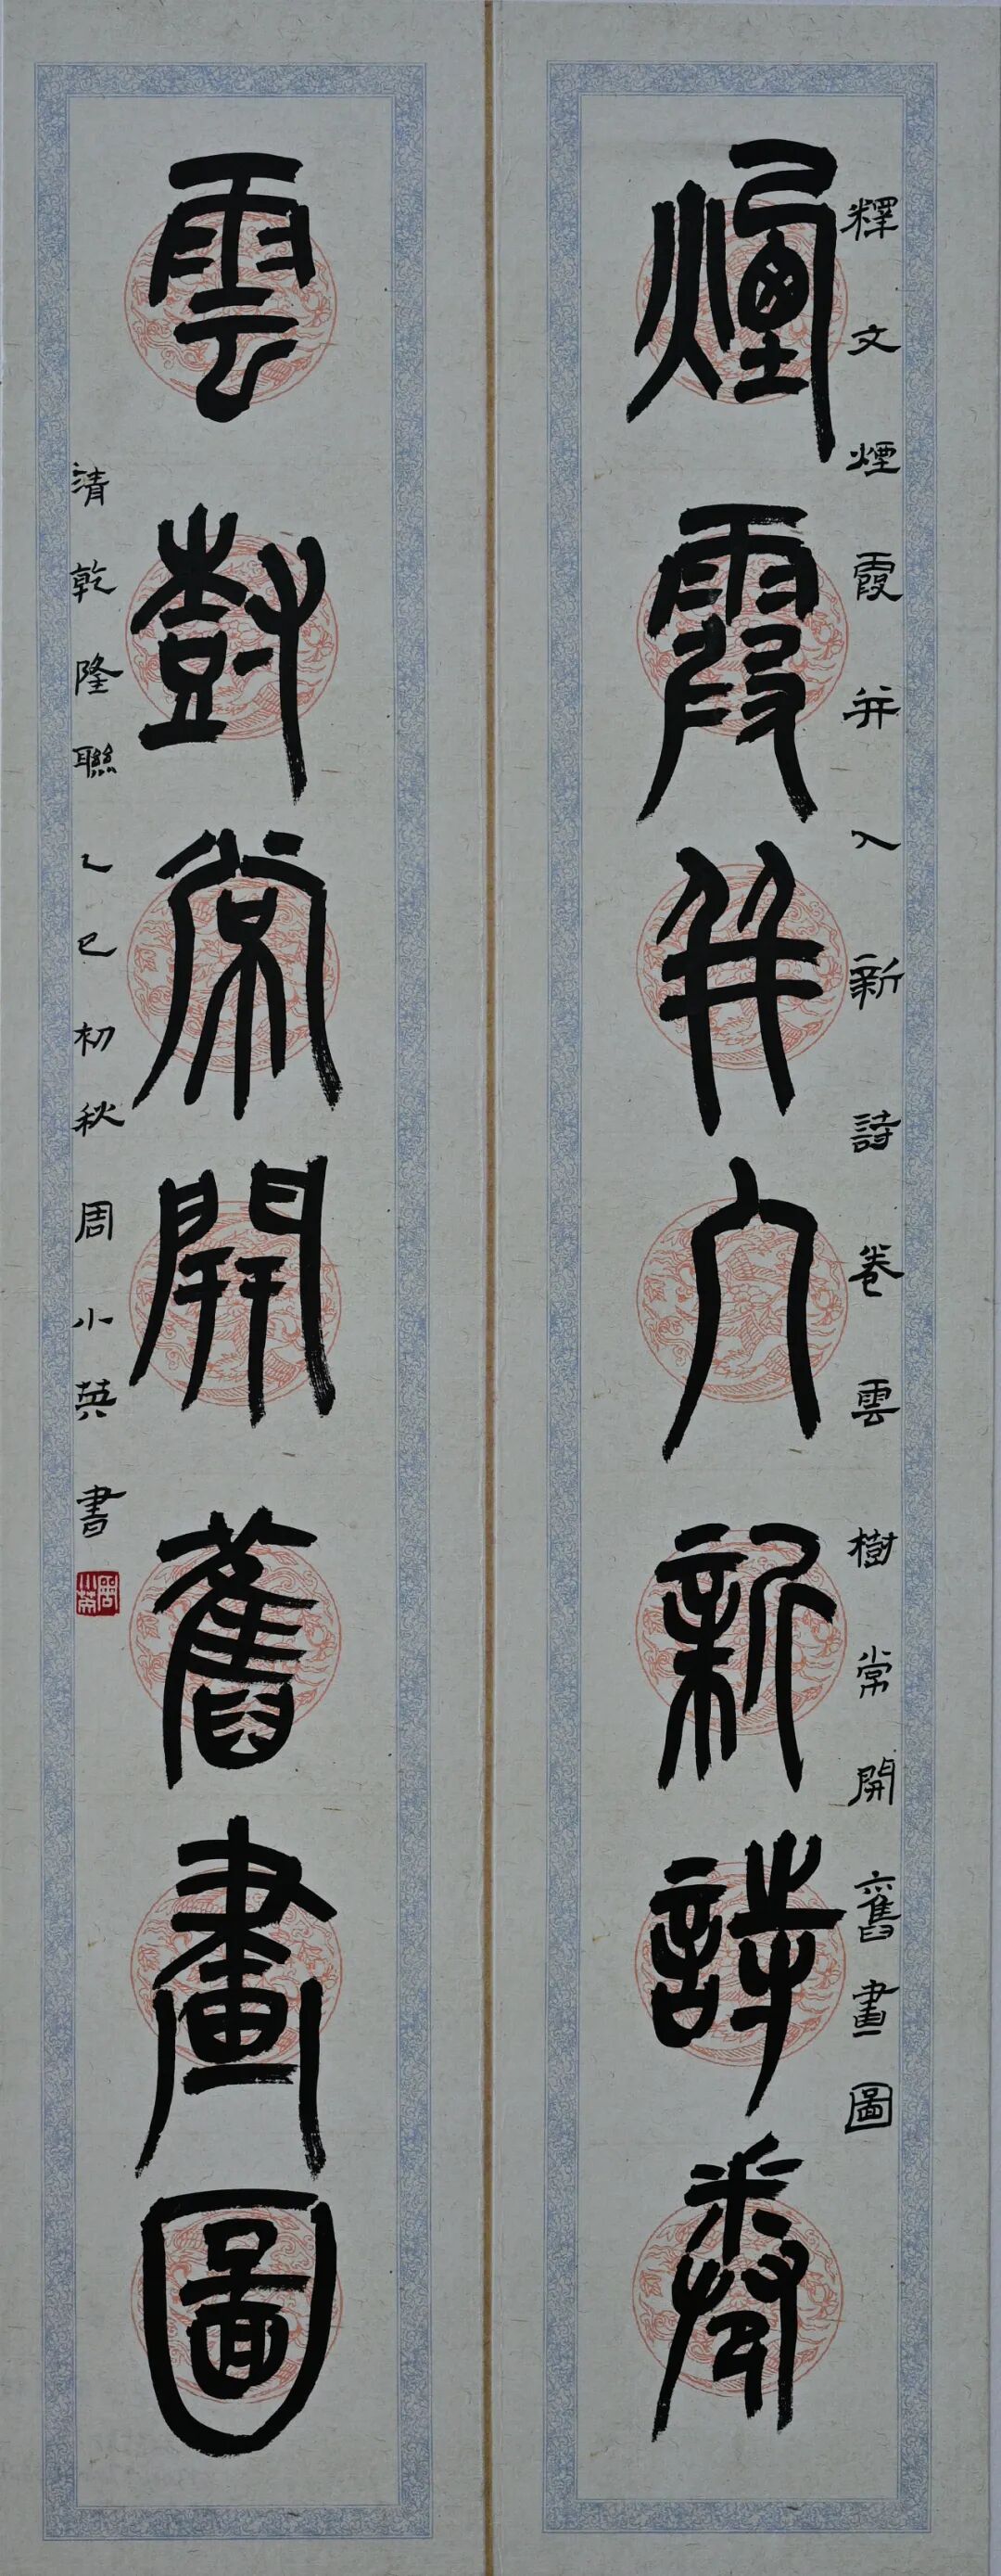 釋文煙霞并入新詩卷雲樹常開舊畫圖
煙霞并入新詩卷
雲樹常開舊畫圖
清乾隆聯乙巳初秋周小英書
周小英